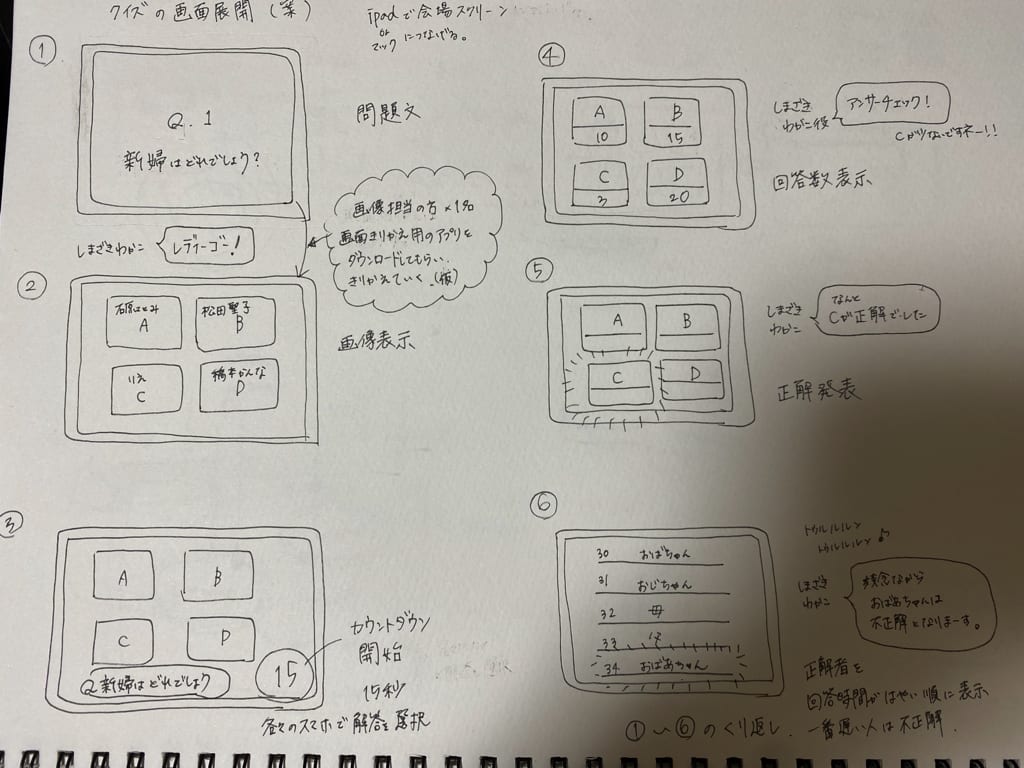 クイズの画面展開（案）
ipadで会場スクリーン
or
マック につなげる。
①
Q.1
新婦はどれでしょう?
問題文
しまざきわかこ
レディーゴー!
画像担当の方×1名
画面きりかえ用のアプリを
ダウンロードしてもらい、
きりかえていく。(仮)
②
石原さとみ
A
松田聖子
B
りえ
C
橋本かんな
D
画像表示
③
A
B
C
D
Q 新婦はどれでしょう
15
カウントダウン
開始
15秒
各々のスマホで解答を選択
④
A
10
B
15
C
3
D
20
しまざき
わかこ役
アンサーチェック!
Cが少ないですネー!!
回答数表示
⑤
A
B
C
D
しまざき
わかこ
なんと
Cが正解でした
正解発表
⑥
30 おばちゃん
31 おじちゃん
32 母
33 父
34 おばあちゃん
トゥルルルルン
トゥルルルルン♪
しまざき
わかこ
残念ながら
おばあちゃんは
不正解となりまーす。
正解者を
回答時間がはやい順に表示
一番遅い人は不正解.
①〜⑥のくり返し.